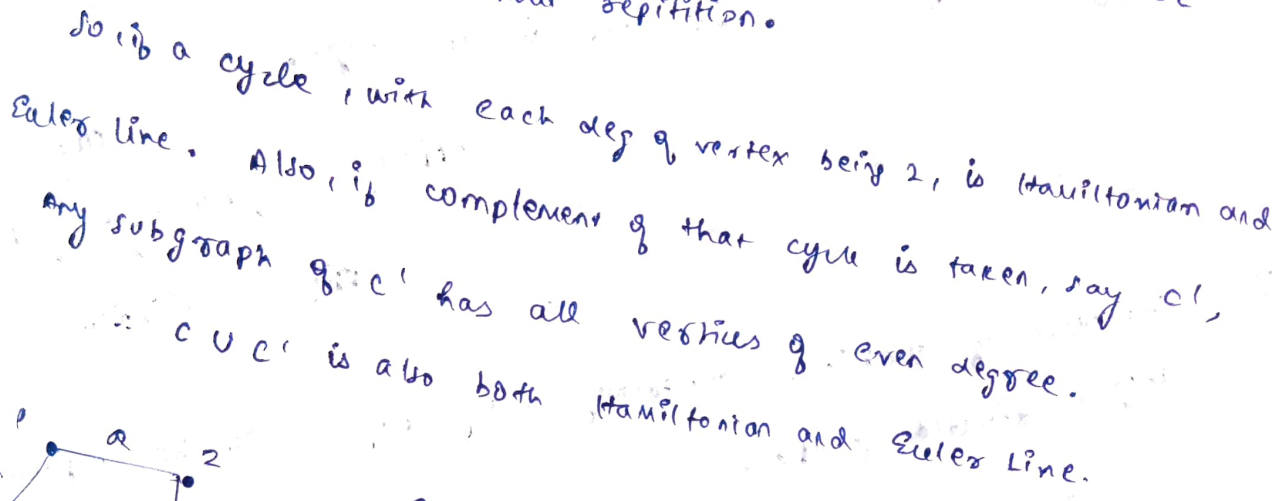 repitition.
So, if a cycle, with each deg of vertex being 2, is Hamiltonian and
Euler line. Also, if complement of that cycle is taken, say c',
Any subgraph of c' has all vertices of even degree.
∴ C ∪ C' is also both Hamiltonian and Euler Line.
a
2